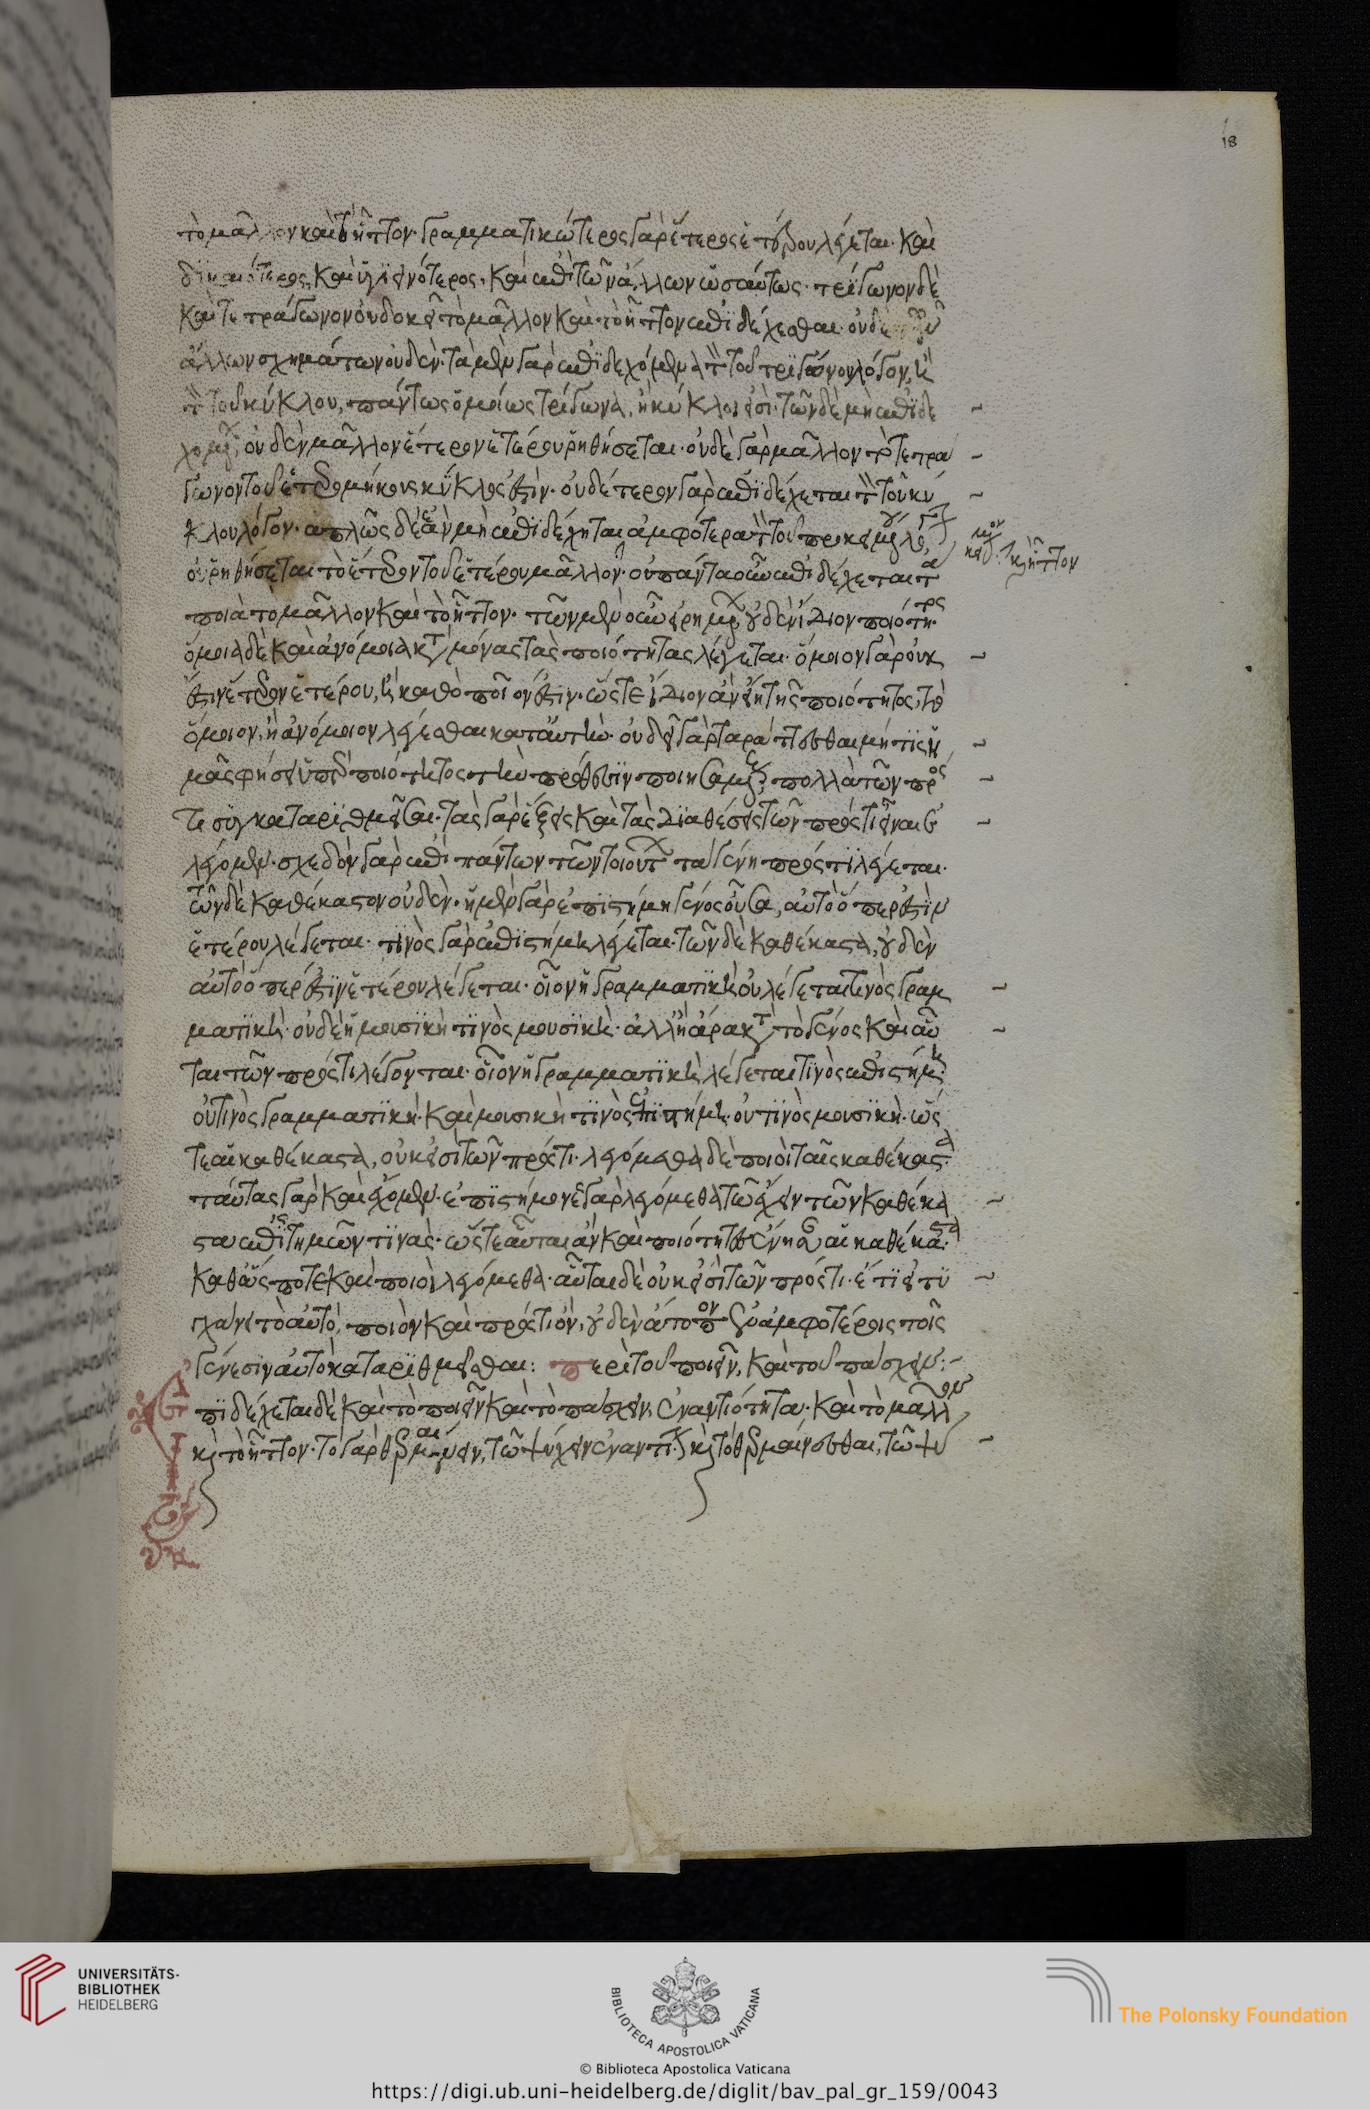 18
τὸ μᾶλλον καὶ τὸ ἧττον· γραμματικώτερος γὰρ ἕτερος ἑτέρου λέγεται· καὶ
δικαιότερος καὶ ὑγιεινότερος· καὶ ἐπὶ τῶν ἄλλων ὡσαύτως· τρίγωνον δὲ
καὶ τετράγωνον οὐ δοκεῖ τὸ μᾶλλον καὶ τὸ ἧττον ἐπιδέχεσθαι· οὐδὲ τῶν
ἄλλων σχημάτων οὐδέν· τὰ μὲν γὰρ ἐπιδεχόμενα τὸν τοῦ τριγώνου λόγον, ἢ
τὸν τοῦ κύκλου, πάντως ὁμοίως τρίγωνα, ἢ κύκλοι εἰσί· τῶν δὲ μὴ ἐπιδε
χομένων οὐδὲν μᾶλλον ἕτερον ἑτέρου ῥηθήσεται· οὐδὲ γὰρ μᾶλλον τὸ τετρά
γωνον τοῦ ἑτερομήκους κύκλος ἐστίν· οὐδέτερον γὰρ ἐπιδέχεται τὸν τοῦ κύ
κλου λόγον· ἁπλῶς δὲ ἐὰν μὴ ἐπιδέχηται ἀμφότερα τὸν τοῦ προκειμένου λόγον
οὐ ῥηθήσεται τὸ ἕτερον τοῦ ἑτέρου μᾶλλον· οὐ πάντα οὖν ἐπιδέχεται τὰ
καὶ ἧττον
ποιὰ τὸ μᾶλλον καὶ τὸ ἧττον· τῶν μὲν οὖν εἰρημένων οὐδὲν ἴδιον ποιότητος·
ὅμοια δὲ καὶ ἀνόμοια κατὰ μόνας τὰς ποιότητας λέγεται· ὅμοιον γὰρ οὐκ
ἔστιν ἕτερον ἑτέρου, ἢ καθὸ ποῖόν ἐστιν· ὥστε ἴδιον ἂν εἴη τῆς ποιότητος, τὸ
ὅμοιον, ἢ ἀνόμοιον λέγεσθαι κατ' αὐτήν· οὐ δεῖ γὰρ ταράττεσθαι μή τις ἡ
μᾶς φήσει ὑπὲρ ποιότητος τὴν πρόθεσιν ποιησαμένους πολλὰ τῶν πρός
τι συγκαταριθμεῖσθαι· τὰς γὰρ ἕξεις καὶ τὰς διαθέσεις τῶν πρός τι εἶναι ἐ
λέγομεν· σχεδὸν γὰρ ἐπὶ πάντων τῶν τοιούτων τὰ γένη πρός τι λέγεται·
τῶν δὲ καθέκαστον οὐδέν· ἡ μὲν γὰρ ἐπιστήμη γένος οὖσα, αὐτὸ ὅπερ ἐστὶν
ἑτέρου λέγεται· τινὸς γὰρ ἐπιστήμη λέγεται· τῶν δὲ καθέκαστα, οὐδὲν
αὐτὸ ὅπερ ἐστὶν ἑτέρου λέγεται· οἷον ἡ γραμματικὴ οὐ λέγεται τινὸς γραμ
ματική· οὐδὲ ἡ μουσικὴ τινὸς μουσική· ἀλλ' ἢ ἄρα κατὰ τὸ γένος καὶ αὗ
ται τῶν πρός τι λέγονται· οἷον ἡ γραμματικὴ λέγεται τινὸς ἐπιστήμη
οὐ τινὸς γραμματική· καὶ μουσικὴ τινὸς ἐπιστήμη· οὐ τινὸς μουσική· ὥσ
τε αἱ καθέκαστα, οὐκ εἰσὶ τῶν πρός τι· λεγόμεθα δὲ ποιοὶ ταῖς καθέκαστα·
ταύτας γὰρ καὶ ἔχομεν· ἐπιστήμονες γὰρ λεγόμεθα τῷ ἔχειν τῶν καθέκα
στα ἐπιστημῶν τινάς· ὥστε αὗται ἂν καὶ ποιότητες εἴησαν αἱ καθέκαστα·
καθ' ἅς ποτε καὶ ποιοὶ λεγόμεθα· αὗται δὲ οὐκ εἰσὶ τῶν πρός τι· ἔτι εἰ τυ
γχάνει τὸ αὐτὸ, ποιὸν καὶ πρός τι ὄν, οὐδὲν ἄτοπον ἐν ἀμφοτέροις τοῖς
γένεσιν αὐτὸ καταριθμεῖσθαι: περὶ τοῦ ποιεῖν, καὶ τοῦ πάσχειν:
Ἐπιδέχεται δὲ καὶ τὸ ποιεῖν καὶ τὸ πάσχειν, ἐναντιότητα· καὶ τὸ μᾶλλον
καὶ τὸ ἧττον· τὸ γὰρ θερμαίνειν, τῷ ψύχειν ἐναντίον καὶ τὸ θερμαίνεσθαι, τῷ ψύ
UNIVERSITÄTS-
BIBLIOTHEK
HEIDELBERG
BIBLIOTECA APOSTOLICA VATICANA
© Biblioteca Apostolica Vaticana
The Polonsky Foundation
https://digi.ub.uni-heidelberg.de/diglit/bav_pal_gr_159/0043